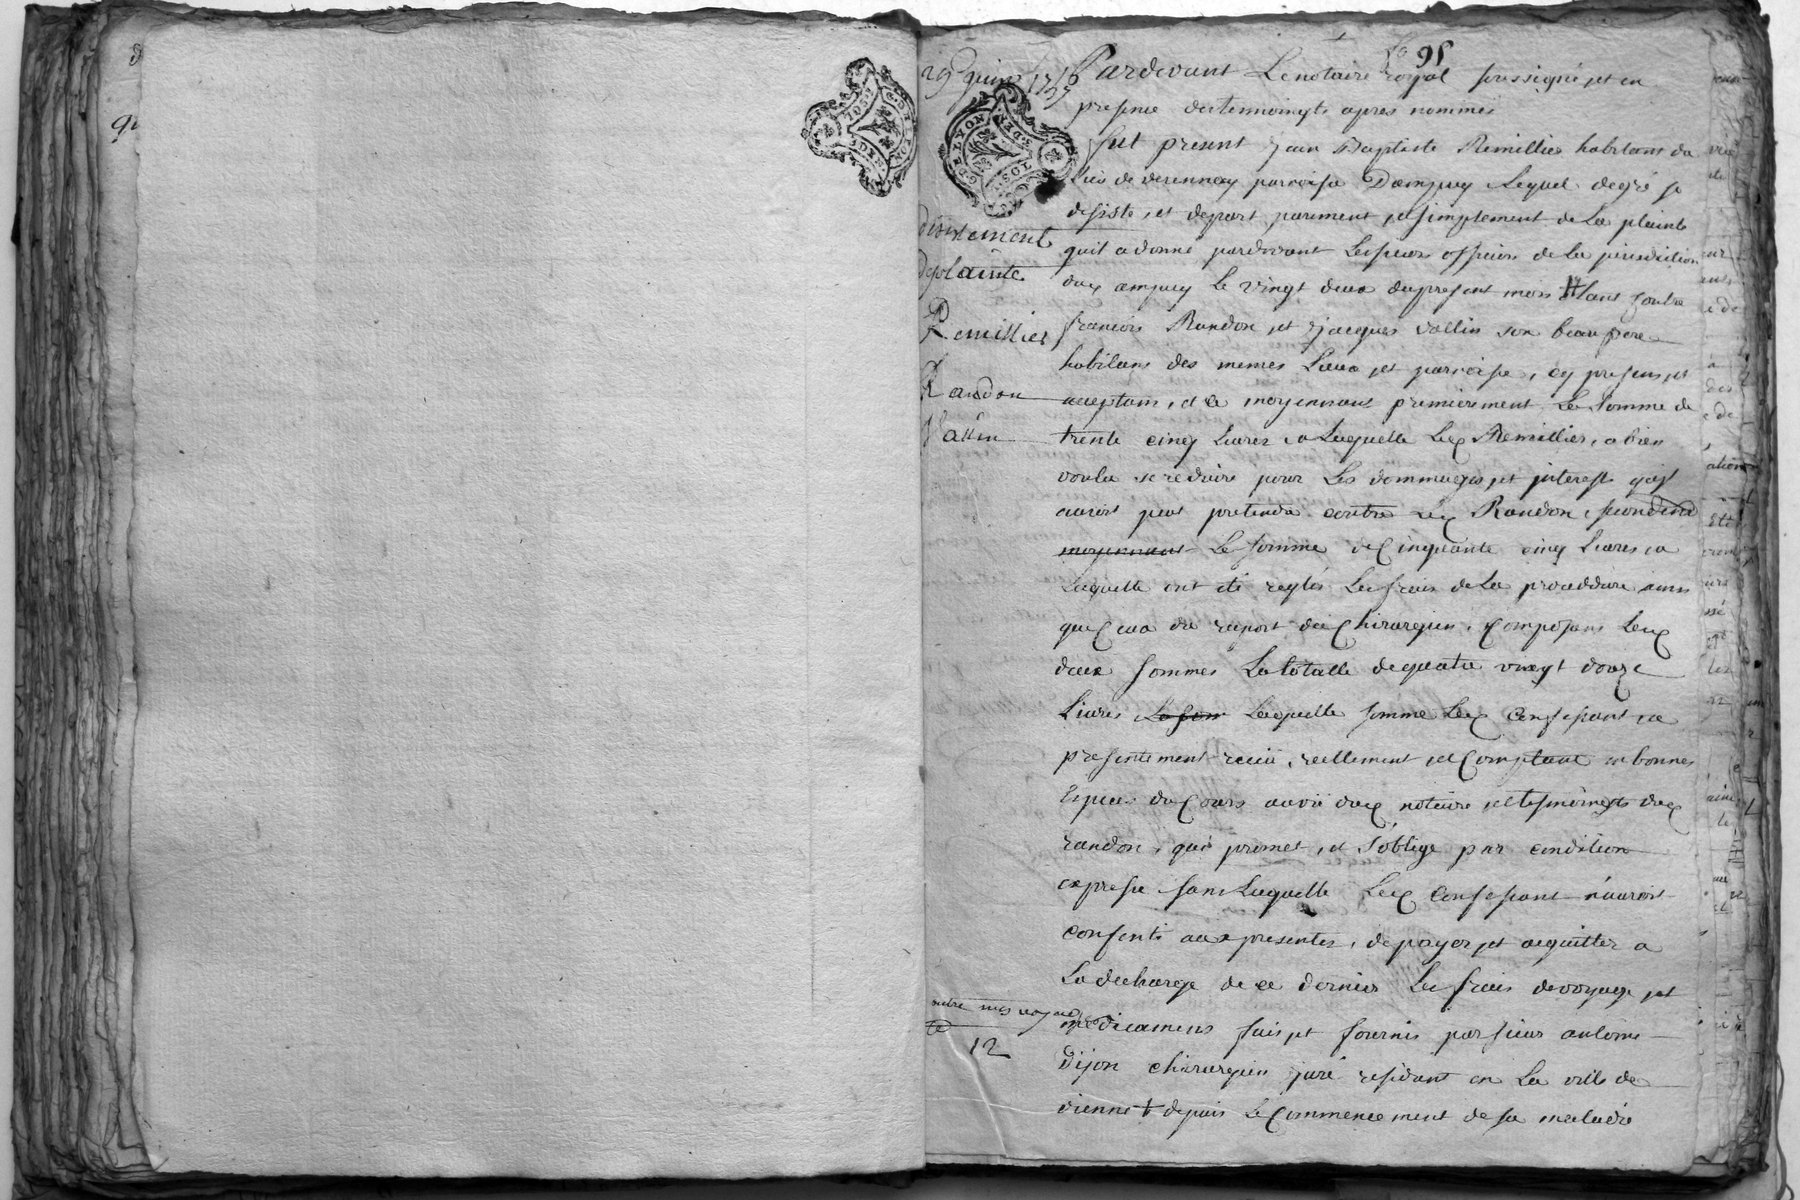 95
29e juin 1716
Pardevant Le notaire royal soussigné et en
presence des temmoingts apres nommés
fut present Jean Baptiste Remillier habitant du
Lieu de verennay parroisse Dampuy Lequel de gré se
desiste, et depart purement et simplement de La plainte
quil a donné pardevant Les sieurs officiers de La jurisdiction
dud ampuy Le vingt deux du present mois
francois Randon et Jacques vallin son beau pere
habitans des memes Lieux et parroisse, cy presens et
acceptans, et ce moyennant premierement La Somme de
trente cinq Livres a Laquelle Led Remillier, a bien
voulu se reduire pour Les dommages et interests quil
auroit peut pretendre contre Led Randon, secondement
moyennant La somme de Cinquante cinq Livres a
Laquelle ont eté reglés Les frais de La procedure ainsi
que Ceux du raport du Chirurgien, Composans Lesd
deux sommes La totalle de quatre vingt douze
Livres La som Laquelle somme Led Confessant a
presentement receü, reellement et Comptant en bonnes
Especes du Cours au vü dud notaire et tesmoingts dud
randon, qui promet, et s'oblige par condition
expresse sans Laquelle Led Confessant n'auroit
consenti aux presentes, de payer et acquitter a
La decharge de ce dernier Les frais de voyage et
medicamens faits et fournis par sieur antoine
Dijon chirurgien juré residant en La ville de
vienne depuis Le Commencement de sa maladie
Desistement
de plainte
Remillier
Randon
Vallin
12
GE LYON